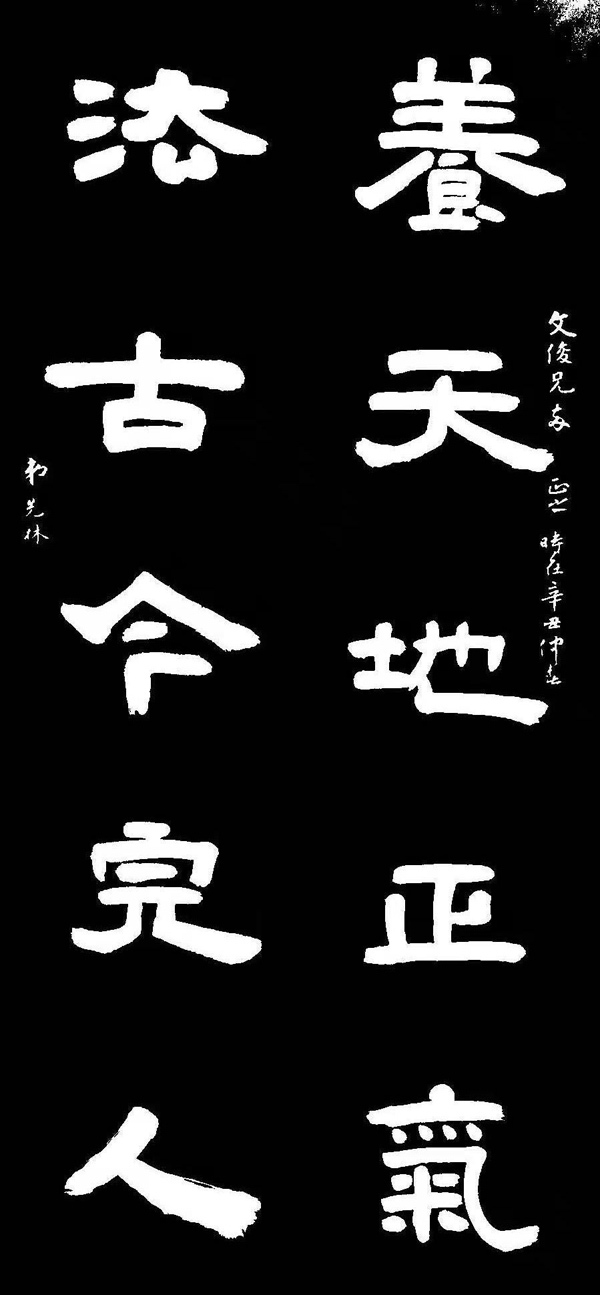 文俊兄 正之 時在辛丑仲春
養天地正氣
法古今完人
先林